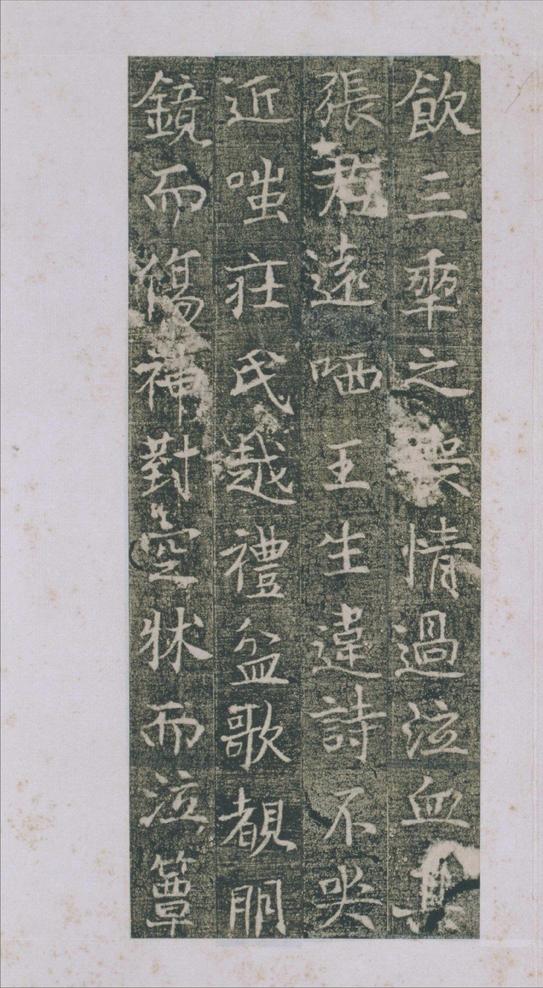 飲三秊之情過泣血其
張君遠哂王生違詩不哭
近嗤莊氏越禮盆歌覩明
鏡而傷神對空牀而泣簟